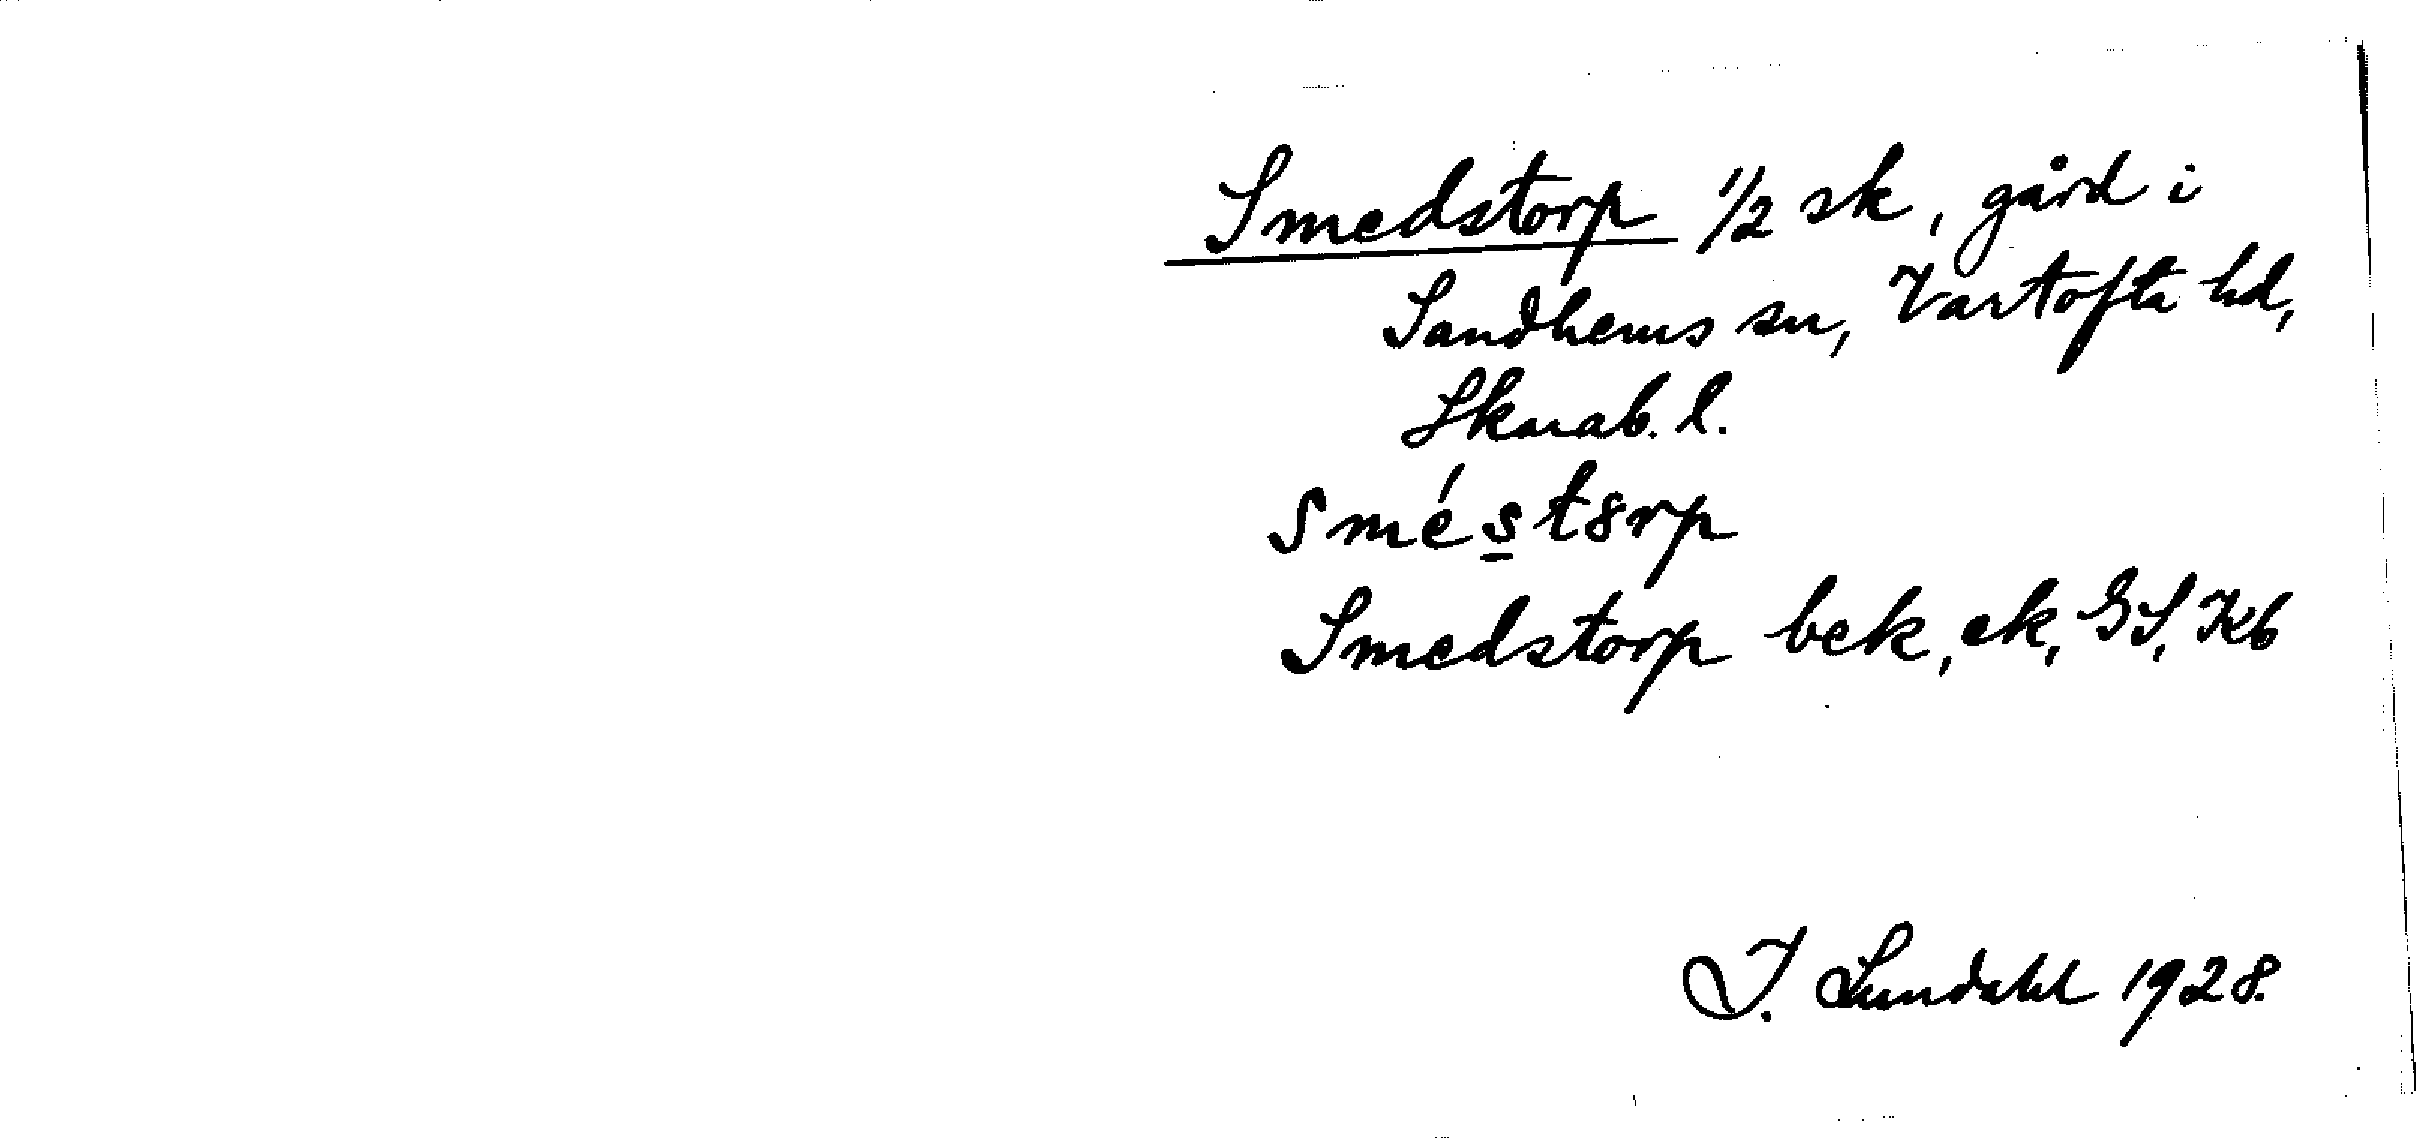 Smedstorp 1/2 sk, gård i
Sandhems sn, Vartofta hd,
Skarab. l.
smés̲t8rp
Smedstorp bek, ek, GS, Kb
I. Lundahl 1928.